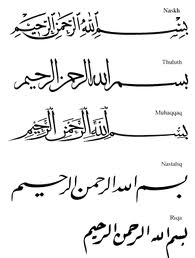 Naskh
بِسْمِ اللهِ الرَّحْمٰنِ الرَّحِيْمِ
Thuluth
بسم الله الرحمن الرحيم
Muhaqqaq
بِسْمِ اللهِ الرَّحْمٰنِ الرَّحِيْمِ
Nastaliq
بسم الله الرحمن الرحيم
Riqa
بسم الله الرحمن الرحيم